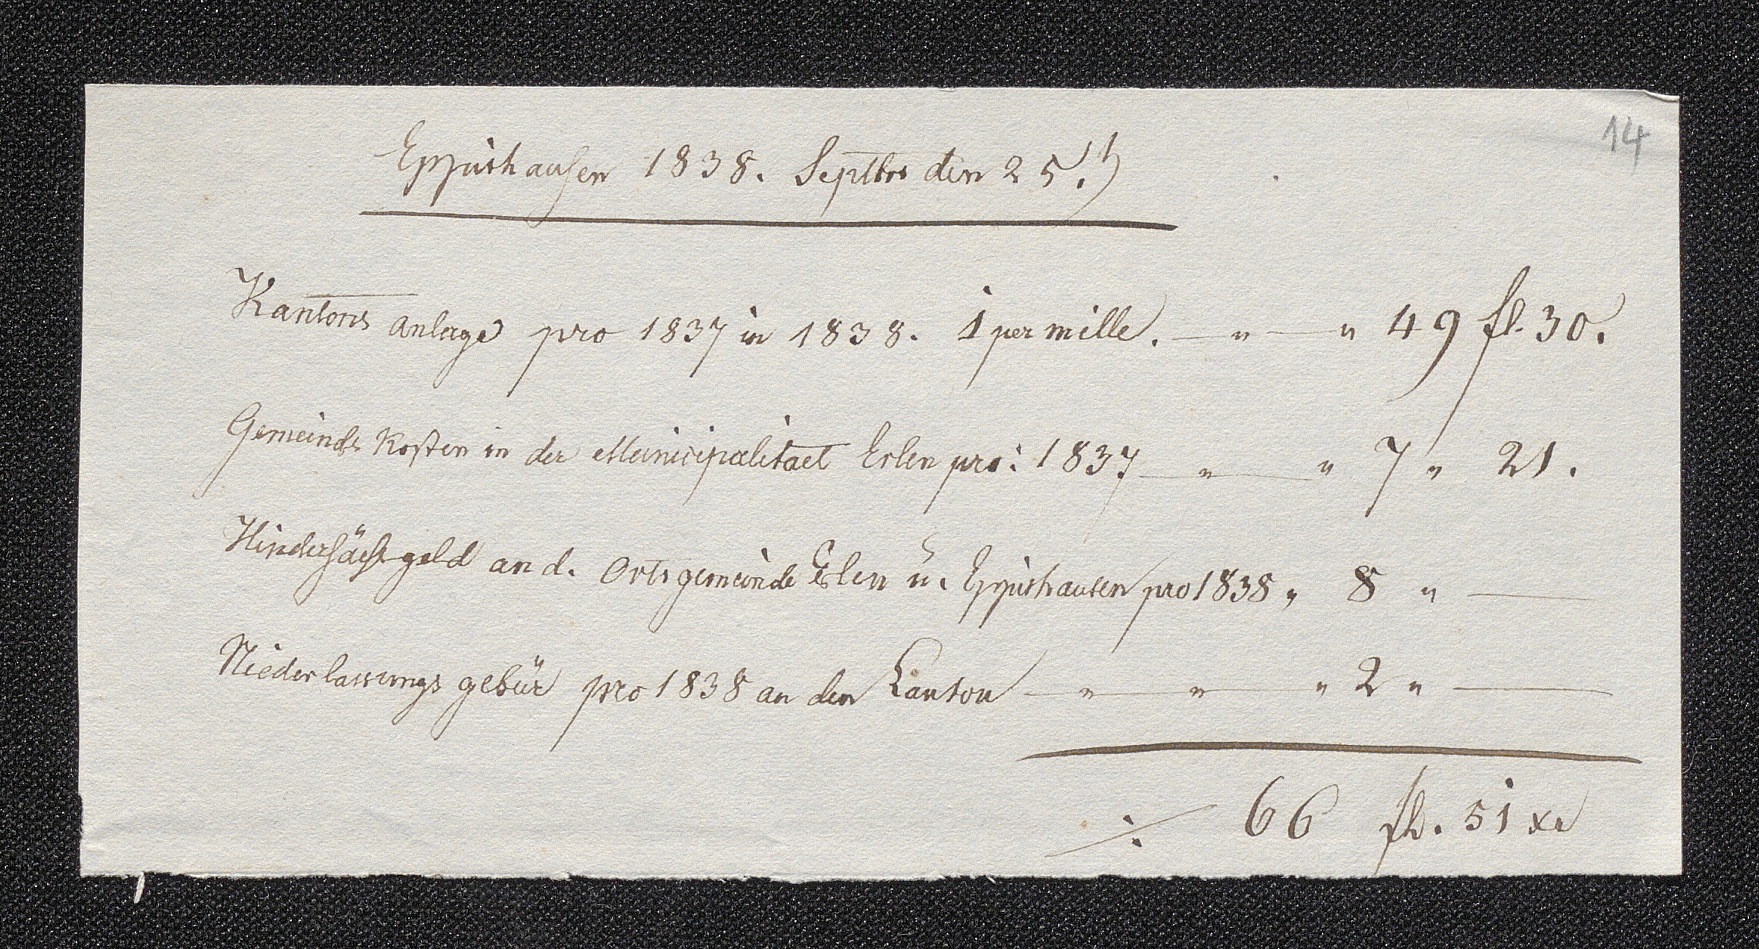 14
Eppishausen 1838. Septbr den 25.
Kantons anlage pro 1837 in 1838. 1 per mille. — " — " 49 fl. 30.
Gemeinds Kosten in der Municipalitaet Erlen pro: 1837 — " — " 7 " 21.
Hindersäßgeld an d. Ortsgemeinde Erlen u. Eppishausen pro 1838 " 8 " —
Niederlassungs gebür pro 1838 an den Canton — " — " — " 2 " —
./. 66 fl. 51 xr